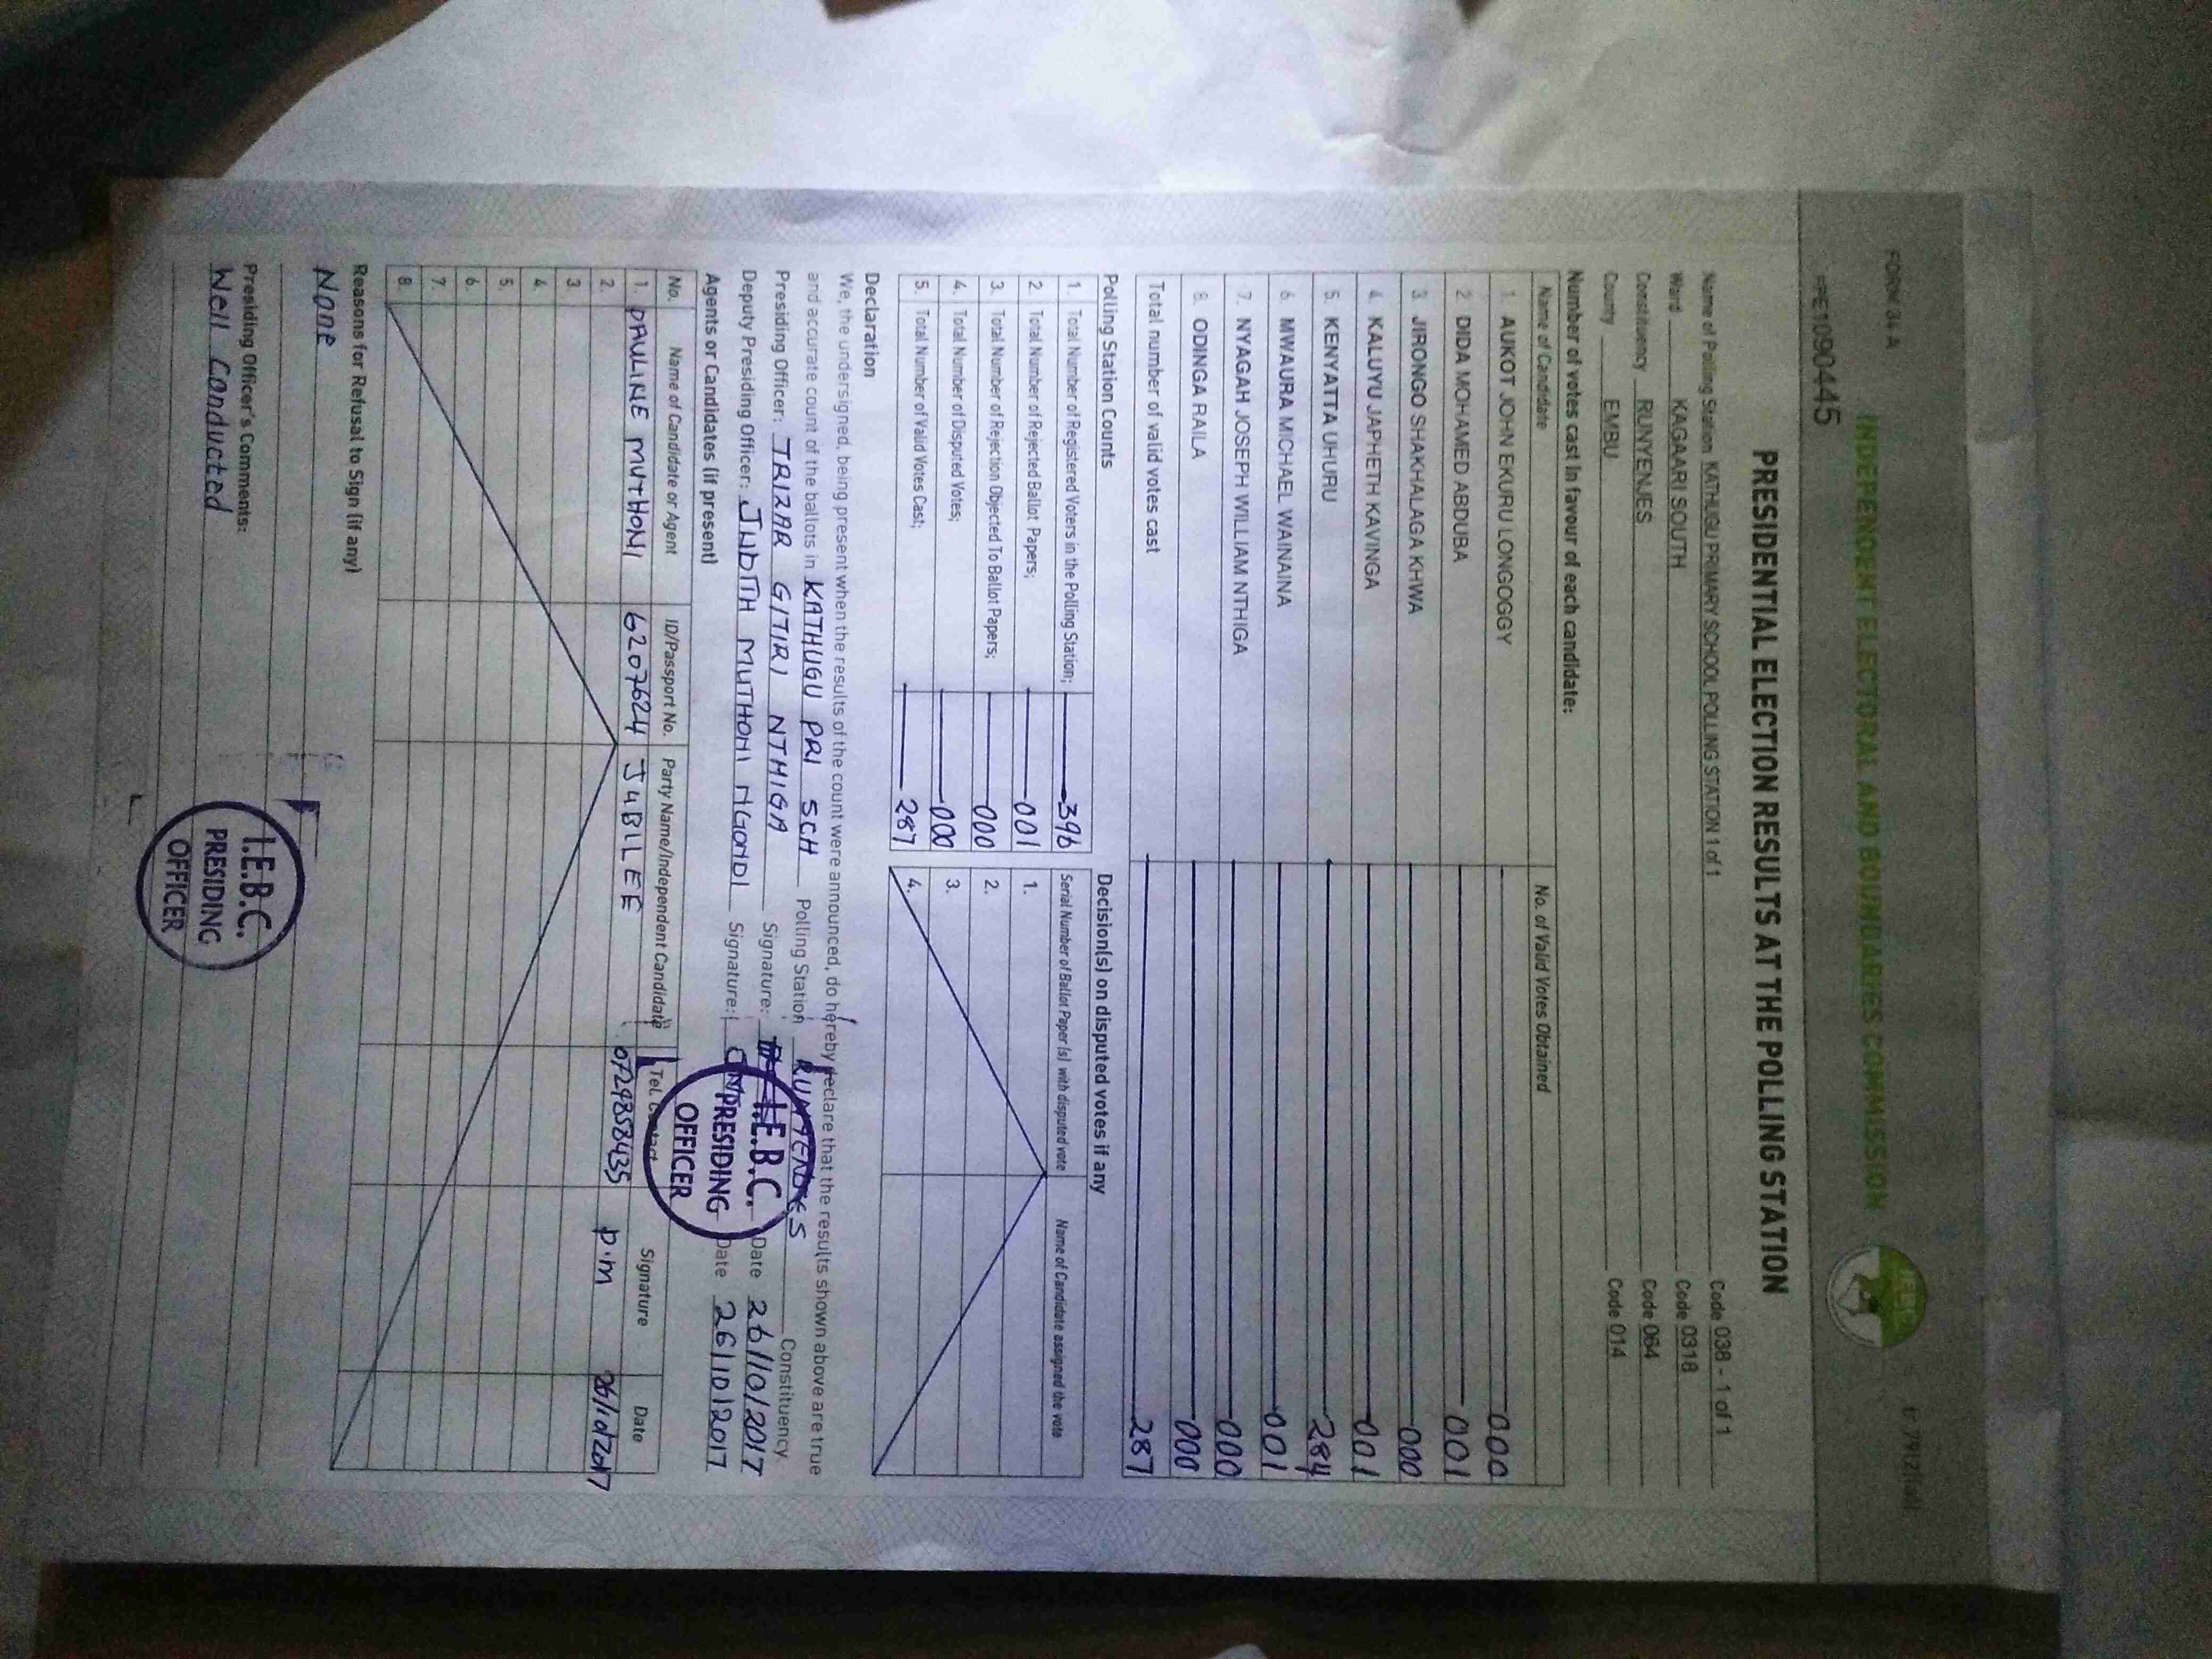 FORM 34A
INDEPENDENT ELECTORAL AND BOUNDARIES COMMISSION
IEBC
PRE1090445
PRESIDENTIAL ELECTION RESULTS AT THE POLLING STATION
Name of Polling Station KATHUGU PRIMARY SCHOOL POLLING STATION 1 of 1 Code 038 - 1 of 1
Ward KAGAARI SOUTH Code 0318
Constituency RUNYENJES Code 064
County EMBU Code 014
Number of votes cast in favour of each candidate:
Name of Candidate No. of Valid Votes Obtained
1. AUKOT JOHN EKURU LONGOGGY 000
2. DIDA MOHAMED ABDUBA 001
3. JIRONGO SHAKHALAGA KHWA 000
4. KALUYU JAPHETH KAVINGA 001
5. KENYATTA UHURU 284
6. MWAURA MICHAEL WAINAINA 001
7. NYAGAH JOSEPH WILLIAM NTHIGA 000
8. ODINGA RAILA 000
Total number of valid votes cast 287
Polling Station Counts Decision(s) on disputed votes if any
1. Total Number of Registered Voters in the Polling Station; 396 Serial Number of Ballot Paper (s) with disputed vote Name of Candidate assigned the vote
2. Total Number of Rejected Ballot Papers; 001 1.
3. Total Number of Rejection Objected To Ballot Papers; 000 2.
4. Total Number of Disputed Votes; 000 3.
5. Total Number of Valid Votes Cast; 287 4.
Declaration
We, the undersigned, being present when the results of the count were announced, do hereby declare that the results shown above are true
and accurate count of the ballots in KATHUGU PRI SCH Polling Station RUNYENJES Constituency
Presiding Officer: TRIZAR GITIRI NTHIGA Signature: Date 26/10/2017
Deputy Presiding Officer: JUDITH MUTHONI NGONDI Signature: Date 26/10/2017
I.E.B.C.
PRESIDING
OFFICER
Agents or Candidates (if present)
No. Name of Candidate or Agent ID/Passport No. Party Name/Independent Candidate Tel. Contact Signature Date
1. PAULINE MUTHONI 6207624 JUBILEE 0729858435 P.M 26/10/2017
2.
3.
4.
5.
6.
7.
8.
Reasons for Refusal to Sign (if any)
None
Presiding Officer's Comments:
Well Conducted
I.E.B.C.
PRESIDING
OFFICER